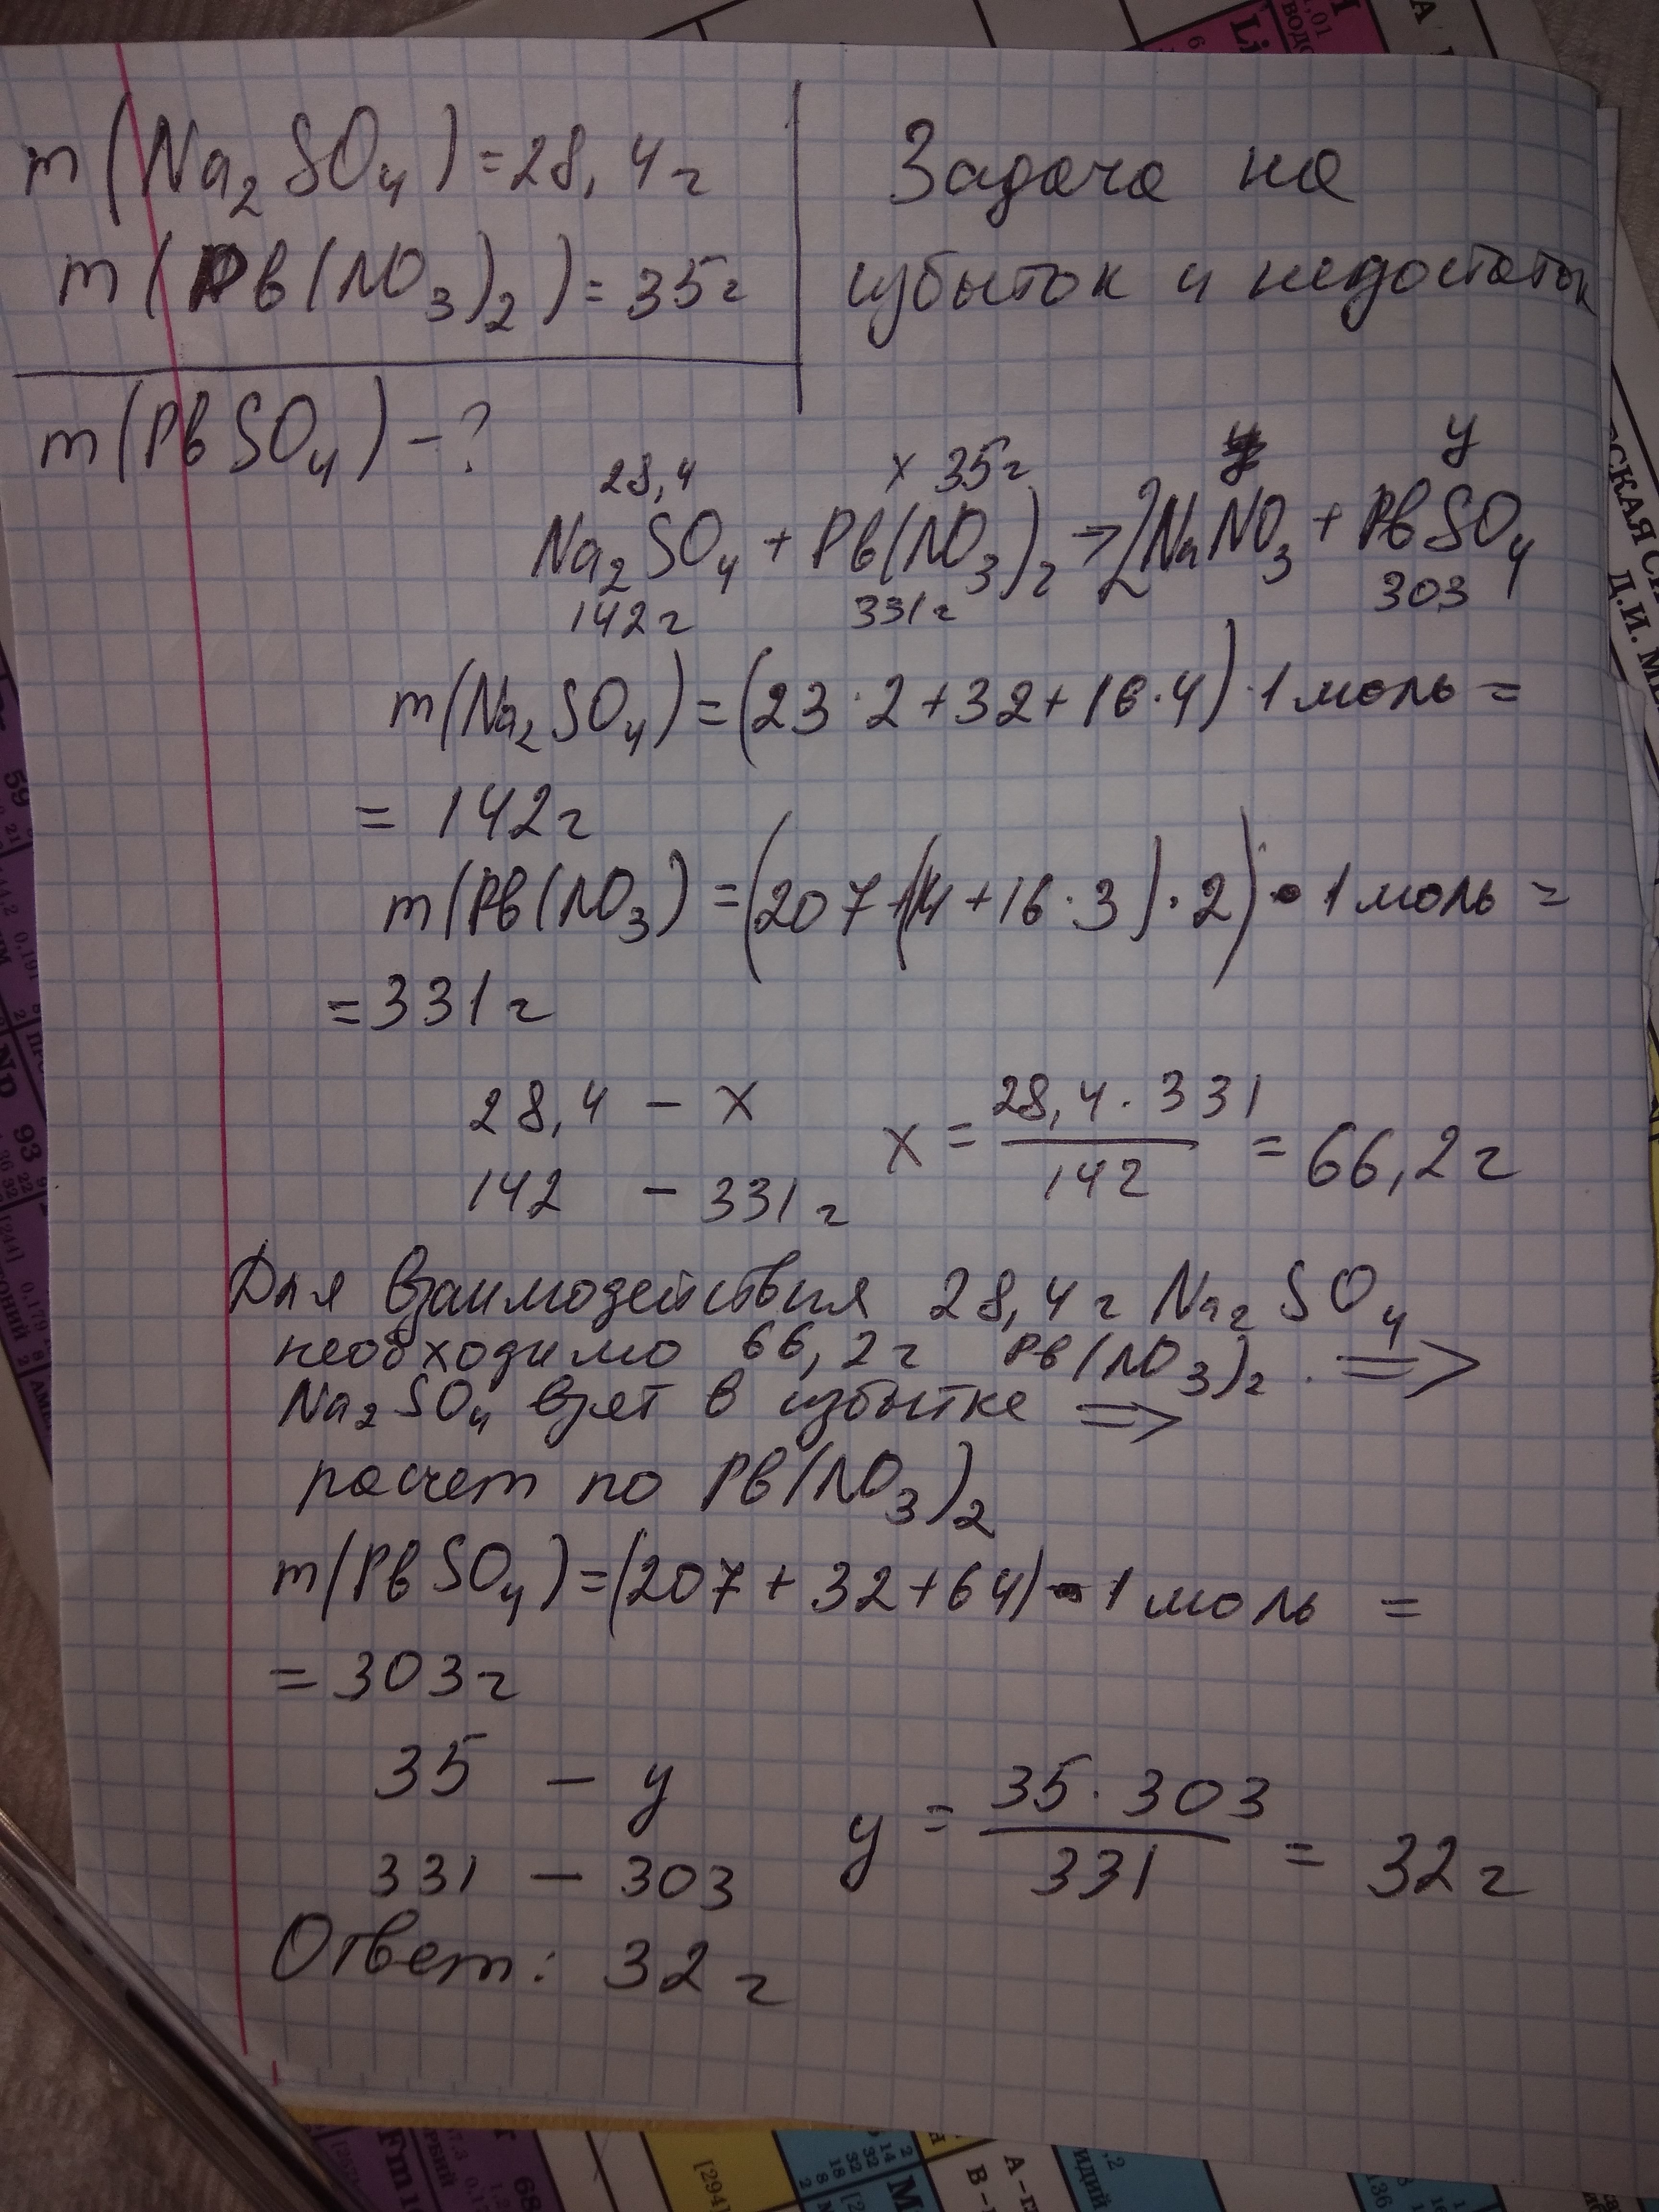 m(Na₂SO₄)=28,4г
m(Pb(NO₃)₂)=35г
m(PbSO₄)-?
Задача на
избыток и недостаток
28,4 x 35г y
Na₂SO₄+Pb(NO₃)₂→2NaNO₃+PbSO₄
142г 331г 303
m(Na₂SO₄)=(23·2+32+16·4)·1моль=
= 142г
m(Pb(NO₃)=(207+(14+16·3)·2)·1моль=
=331г
28,4 - x
142 - 331г
x = 28,4·331/142 = 66,2г
Для взаимодействия 28,4г Na₂SO₄
необходимо 66,2г Pb(NO₃)₂. =>
Na₂SO₄ взят в избытке =>
расчет по Pb(NO₃)₂
m(PbSO₄)=(207+32+64)·1моль =
=303г
35 - y
331 - 303
y = 35·303/331 = 32г
Ответ: 32г
Li
1,01
6
59
93
Np
Fm
68
[294]
М
А-г
В-
136
Д.И. М